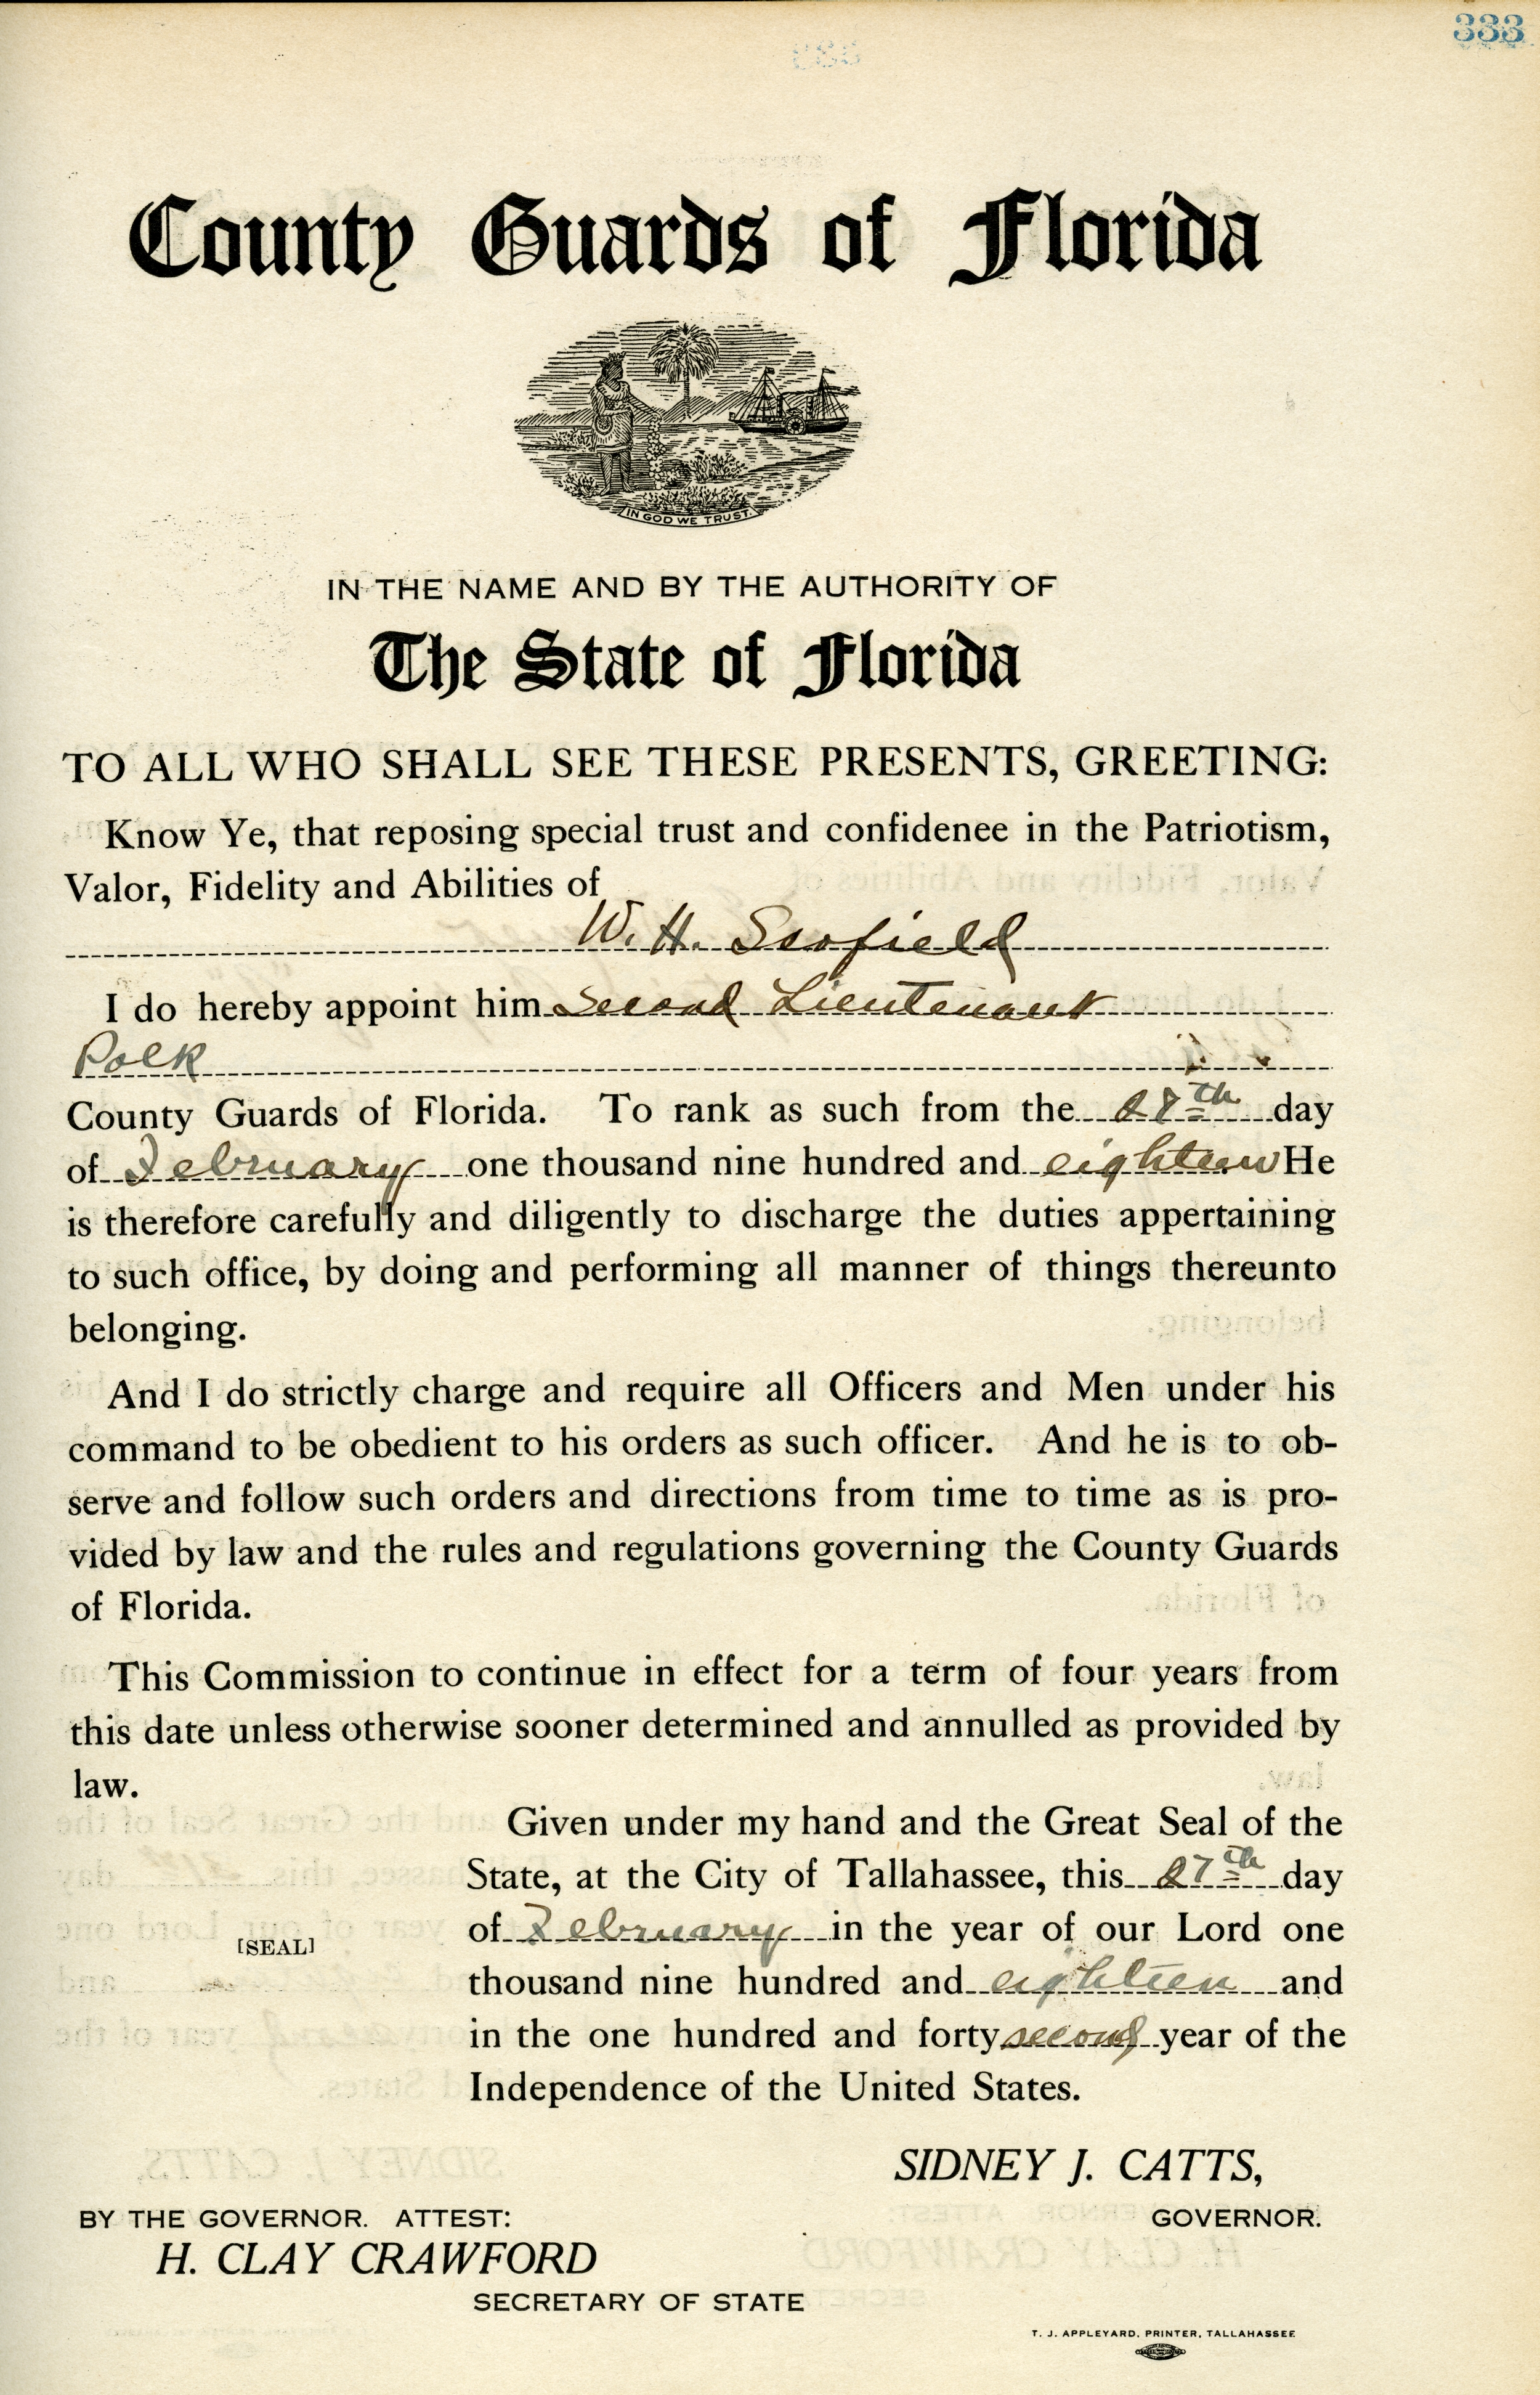 333
County Guards of Florida
IN GOD WE TRUST.
IN THE NAME AND BY THE AUTHORITY OF
The State of Florida
TO ALL WHO SHALL SEE THESE PRESENTS, GREETING:
Know Ye, that reposing special trust and confidenee in the Patriotism,
Valor, Fidelity and Abilities of
W. H. Scofield
I do hereby appoint him Second Lieutenant
Polk
County Guards of Florida. To rank as such from the 27th day
of February one thousand nine hundred and eighteen He
is therefore carefully and diligently to discharge the duties appertaining
to such office, by doing and performing all manner of things thereunto
belonging.
And I do strictly charge and require all Officers and Men under his
command to be obedient to his orders as such officer. And he is to ob-
serve and follow such orders and directions from time to time as is pro-
vided by law and the rules and regulations governing the County Guards
of Florida.
This Commission to continue in effect for a term of four years from
this date unless otherwise sooner determined and annulled as provided by
law.
Given under my hand and the Great Seal of the
State, at the City of Tallahassee, this 27th day
of February in the year of our Lord one
[SEAL]
thousand nine hundred and eighteen and
in the one hundred and forty second year of the
Independence of the United States.
SIDNEY J. CATTS,
BY THE GOVERNOR. ATTEST:
GOVERNOR.
H. CLAY CRAWFORD
SECRETARY OF STATE
T. J. APPLEYARD, PRINTER, TALLAHASSEE